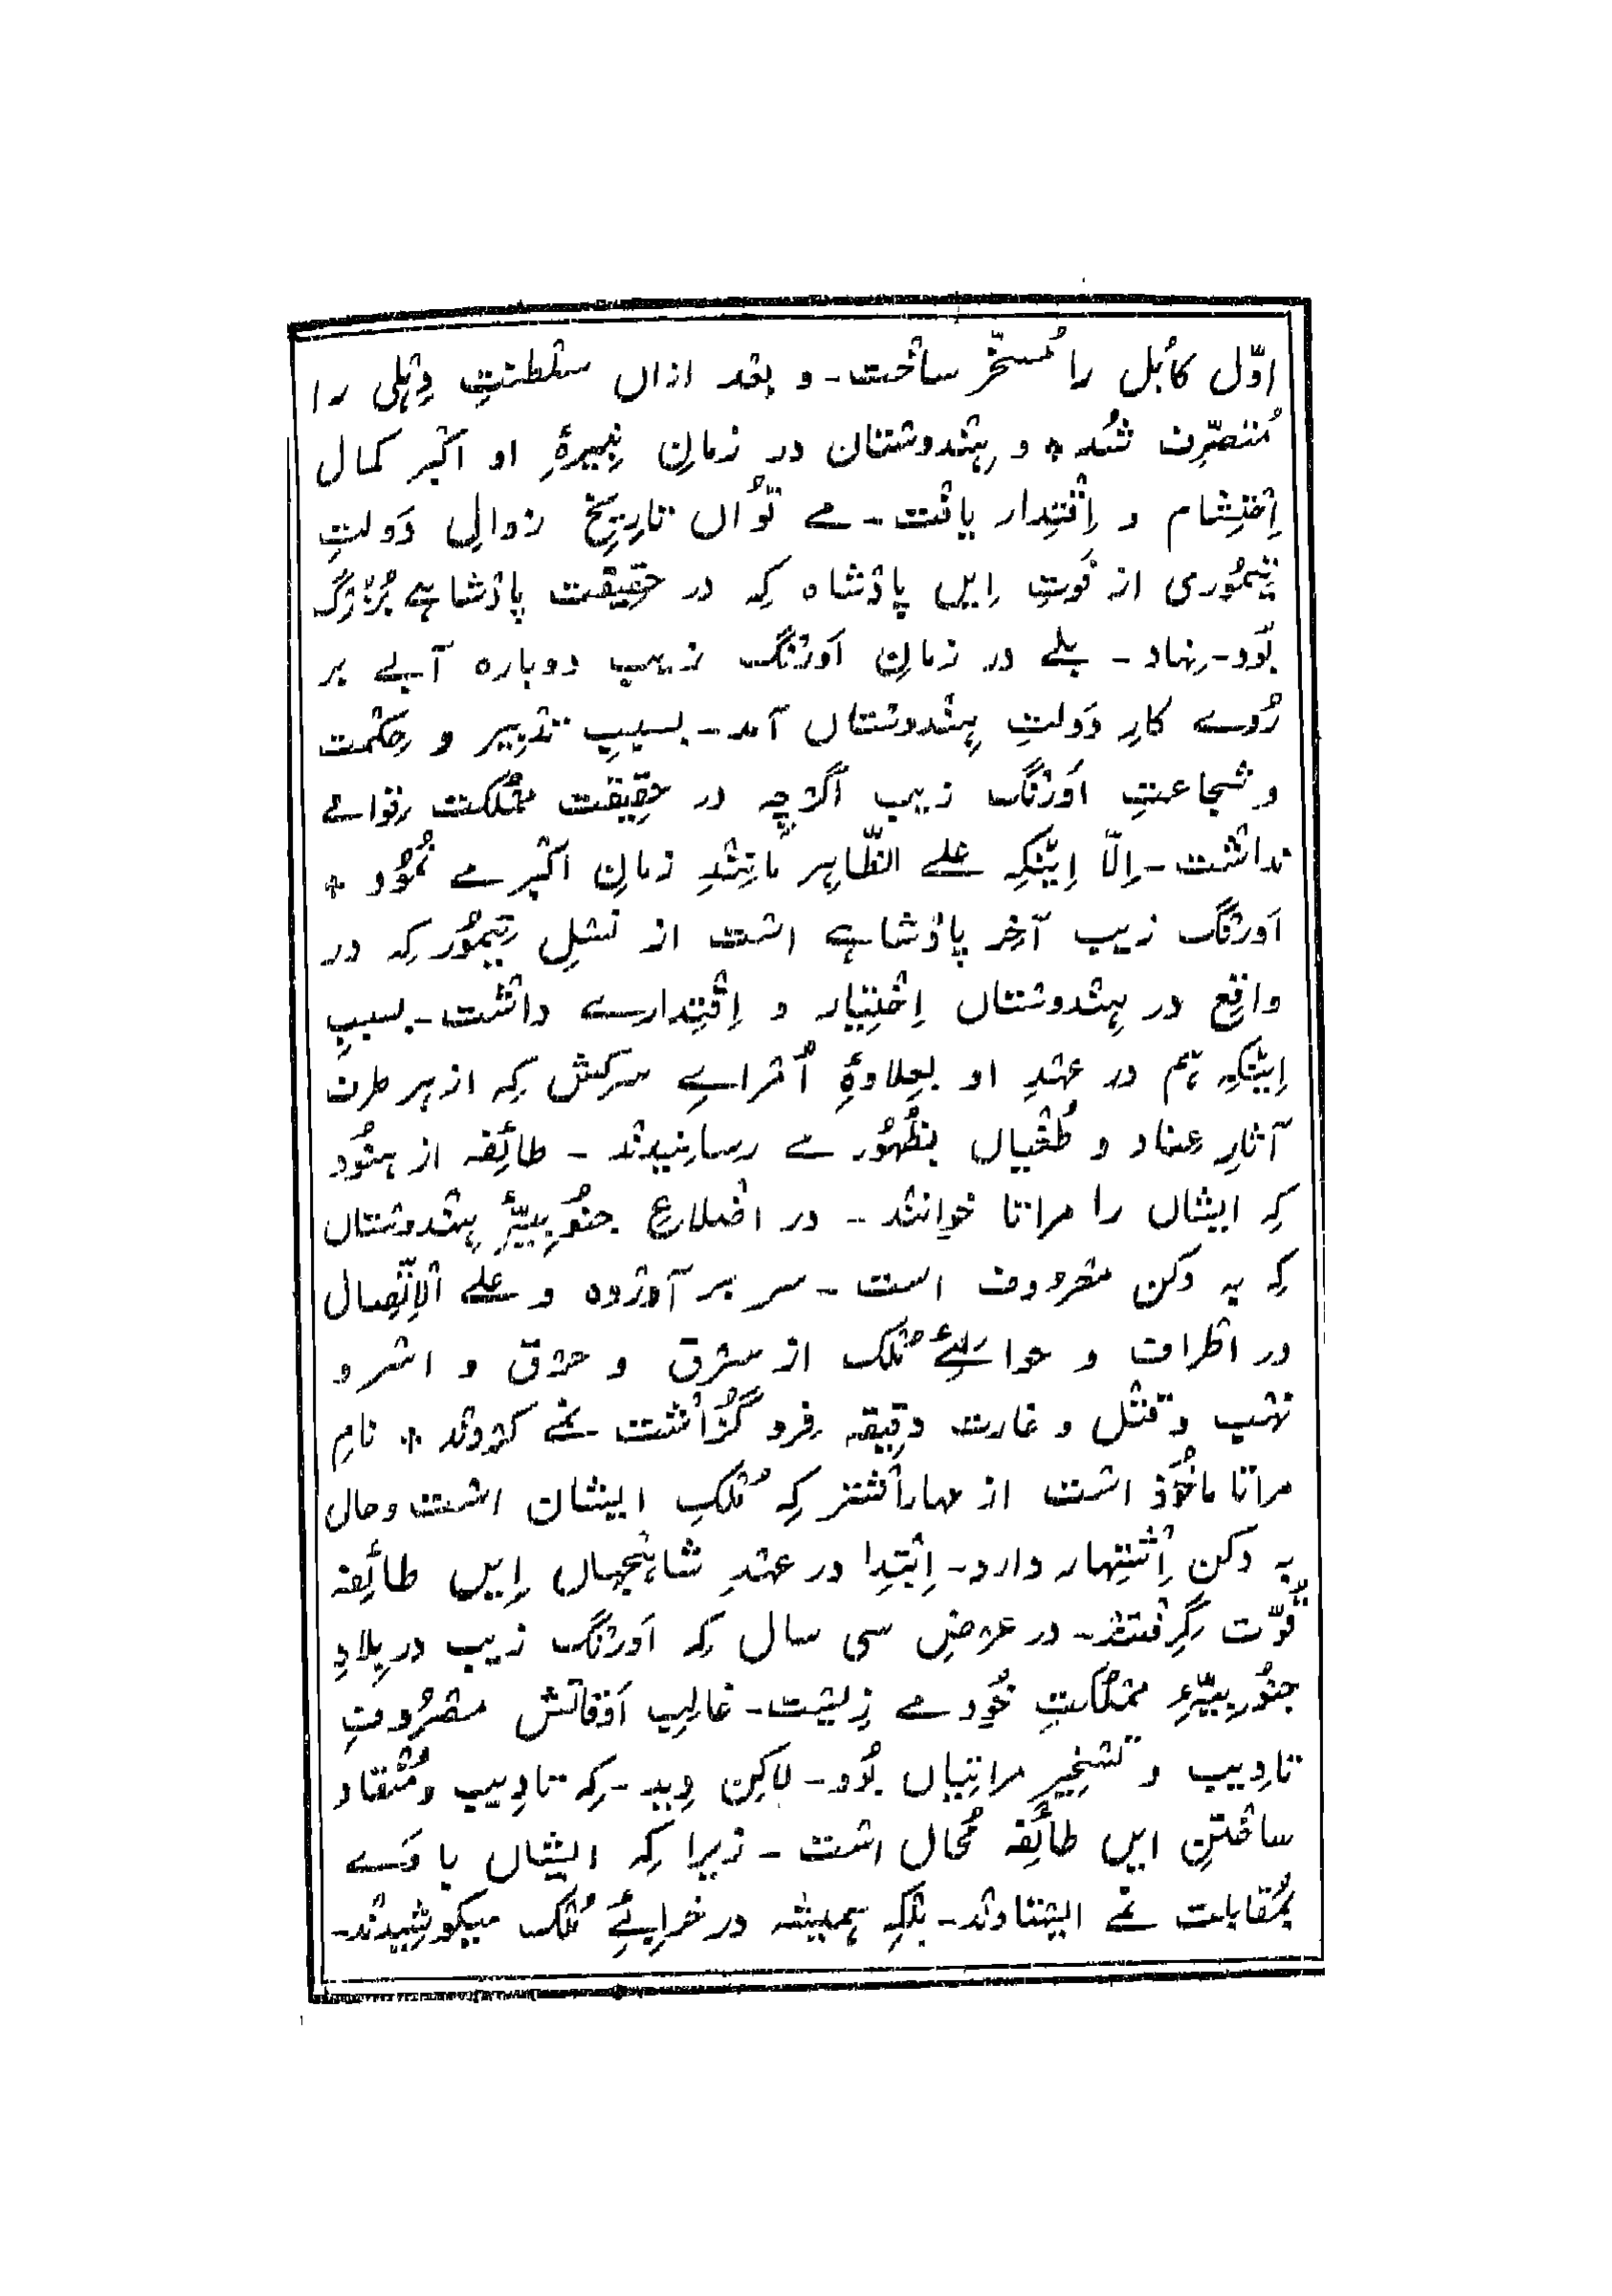 اوّل کابُل را مُسخّر ساخت۔ و بعد ازاں سلطنتِ دِہلی را
مُتصرِّف شُد * و ہِندوستان در زمانِ نبیرۂِ او اکبر کمال
اِحتِشام و اِقتِدار یافت۔ مے تُواں تارِیخِ زوالِ دَولتِ
تیمُوری از فَوتِ اِیں پادشاہ کِہ در حقِیقت پادشاہے بُزُرگ
بُود۔ نِہاد۔ بلے در زمانِ اَورنگ زیب دوبارہ آبے بر
رُوے کارِ دَولتِ ہِندوستاں آمد۔ بسببِ تدبِیر و حِکمت
و شجاعتِ اَورنگ زیب اگرچِہ در حقِیقت مملُکت رنوائے
نداشت۔ اِلّا اِینکِہ علے الظّاہِر مانِندِ زمانِ اکبر مے نمُود *
اَورنگ زیب آخِر پادشاہے است از نسلِ تیمُور کِہ در
واقِع در ہِندوستاں اِختِیار و اِقتِدارے داشت۔ بسببِ
اِینکِہ ہم در عہدِ او بعِلاوۂِ اُمراے سرکش کِہ از ہر طرف
آثارِ عِناد و طُغیاں بظُہُور مے رسانِیدند ۔ طائِفہ از ہنُود
کِہ ایشاں را مراتا خوانند ۔ در اضلاعِ جنُوبِیّۂِ ہِندوستاں
کِہ بہ دکن معرُوف است ۔ سر بر آوردہ و علے الاِتّصال
در اطراف و حوالیِٔ مُلک از سرق و حرق و اسر و
نہب و قتل و غارت دقِیقہ فِرو گُزاشت نمے کردند * نامِ
مراتا ماخُوذ است از مہاراشتر کِہ مُلکِ ایشان است و حال
بہ دکن اِشتِہار دارد۔ اِبتِدا در عہدِ شاہجہاں اِیں طائِفہ
قُوّت گِرِفتند۔ در عرضِ سی سال کِہ اَورنگ زیب در بِلادِ
جنُوبِیّۂِ مملکتِ خُود مے زِیست۔ غالِب اَوقاتش مصرُوفِ
تادِیب و تسخِیرِ مراتِیاں بُود۔ لاکِن دِید۔ کِہ تادِیب و مُنقاد
ساختنِ ایں طائِفہ مُحال است ۔ زیرا کِہ ایشاں با کَسے
بمُقابلت نمے ایستادند۔ بلکِہ ہمیشہ در خرابِیٔ مُلک میکوشِیدند۔